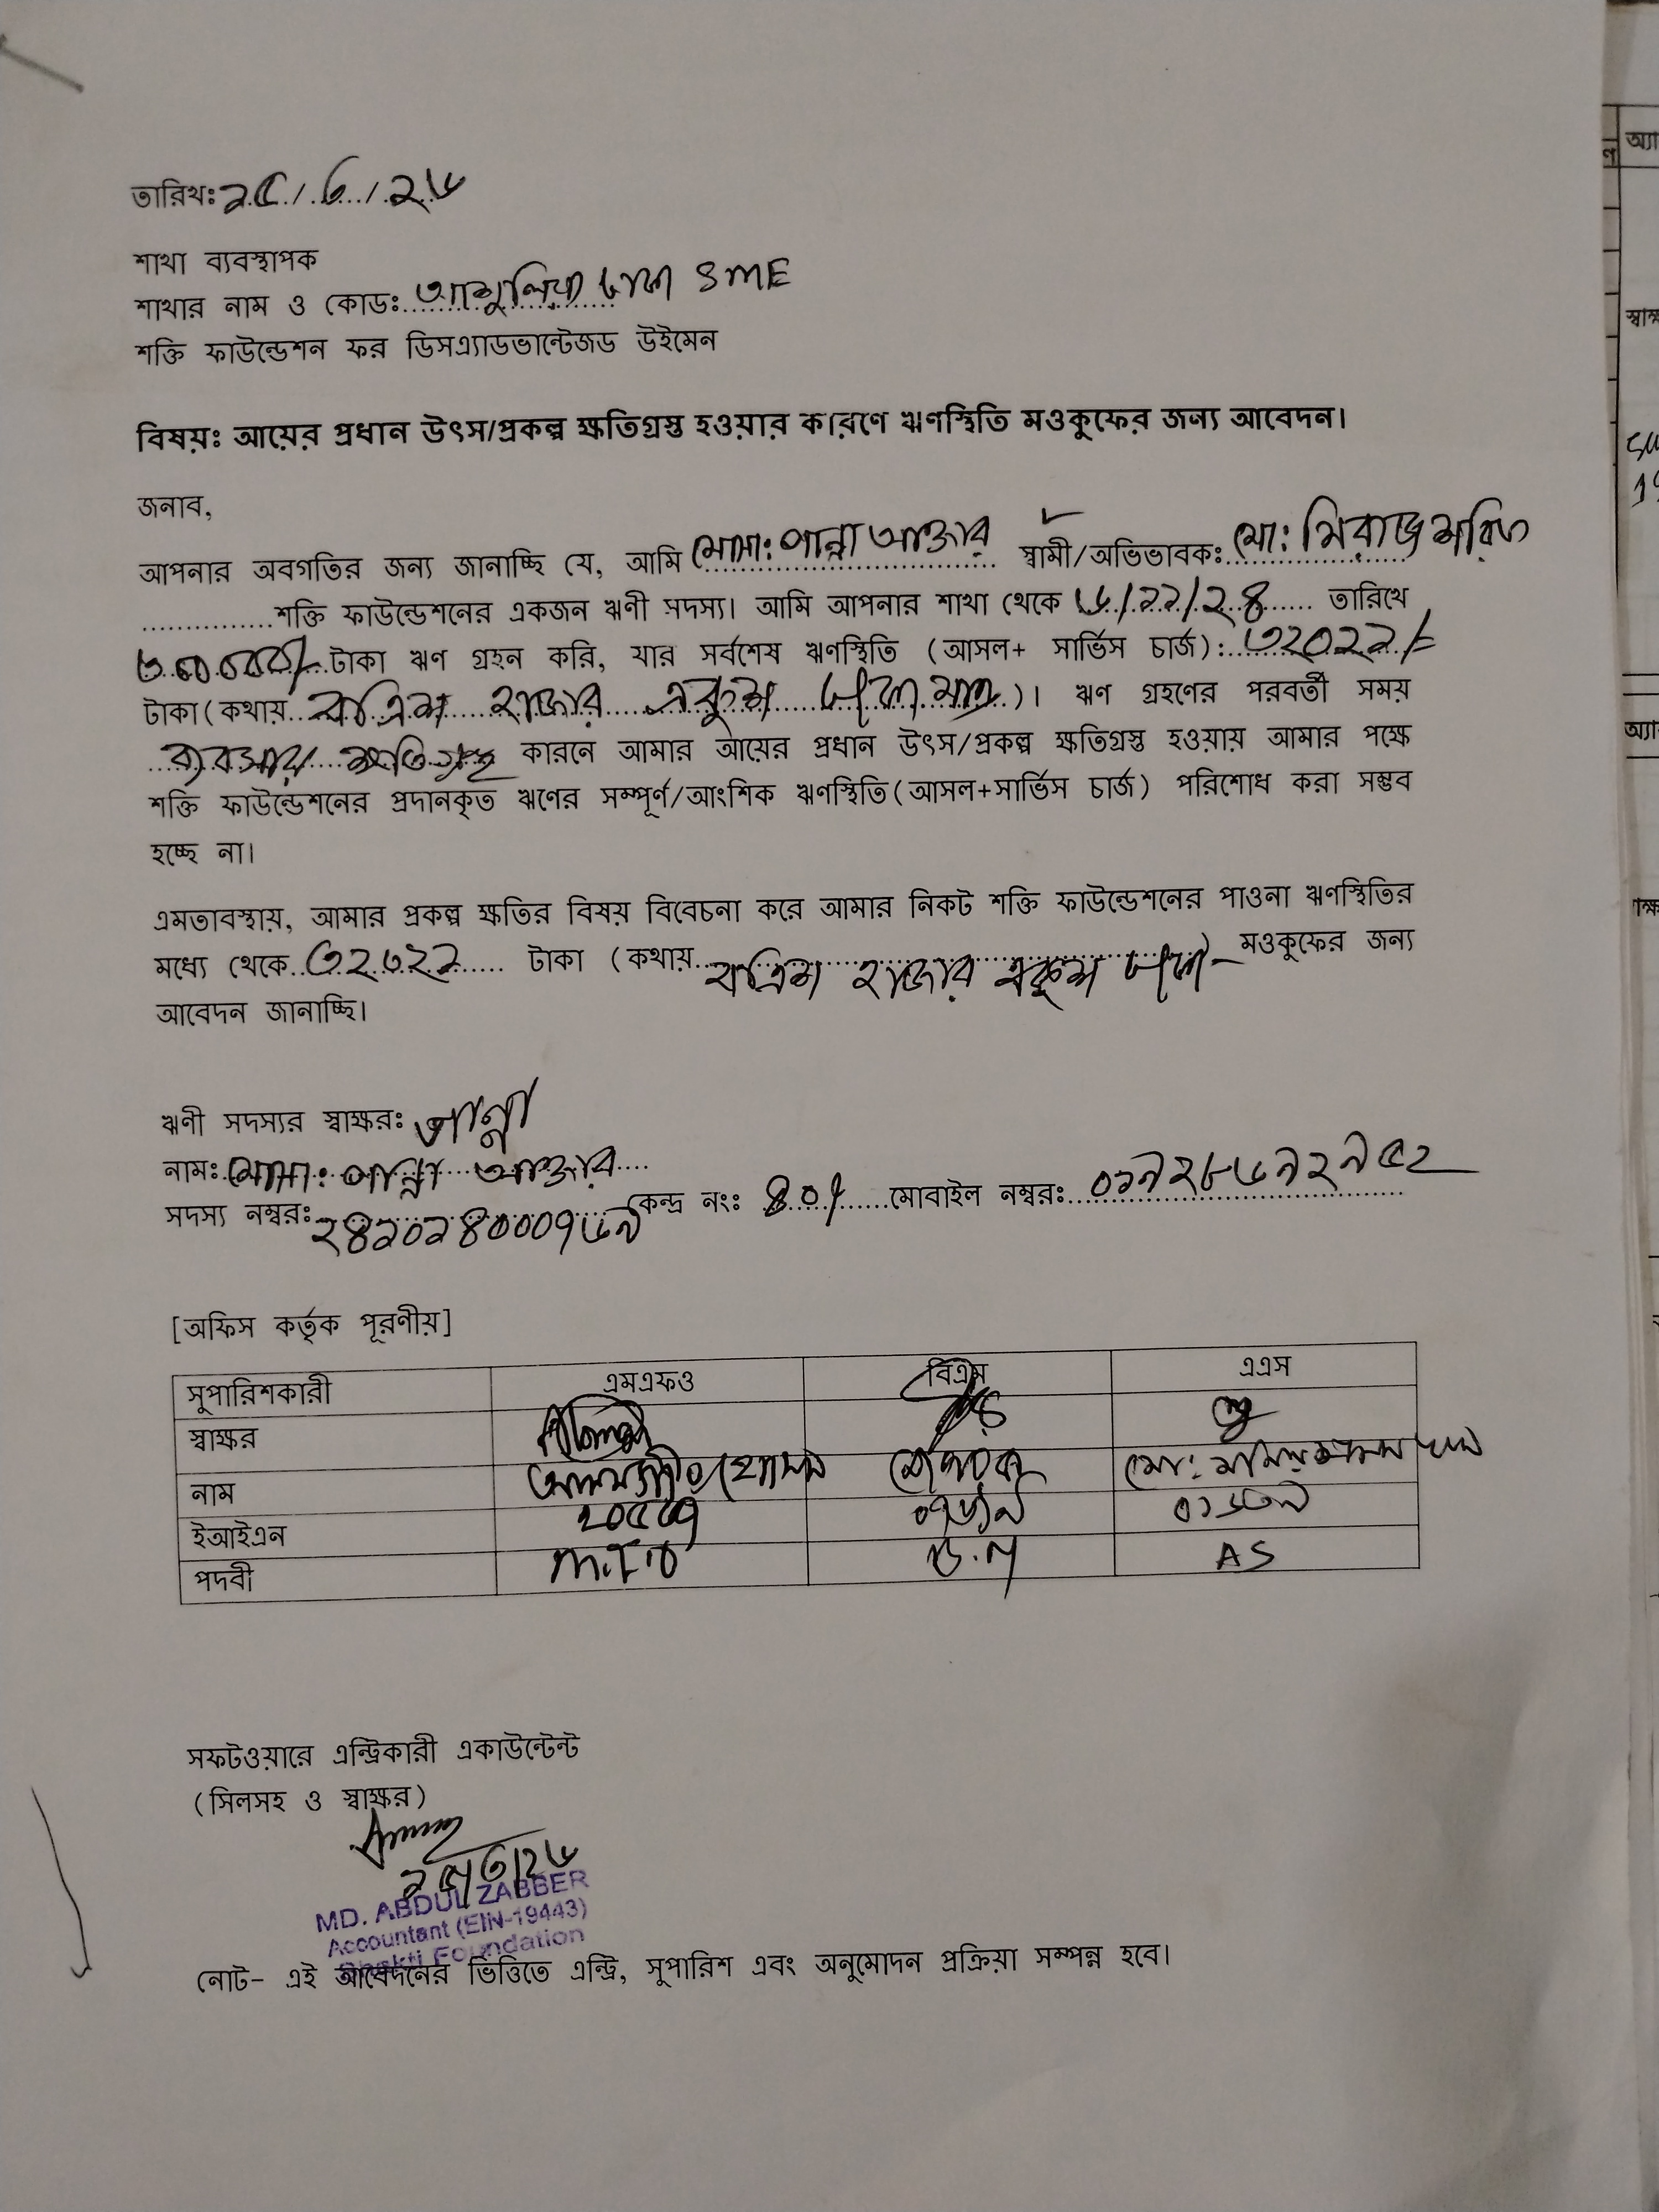 তারিখঃ ২৫/৩/২৬
শাখা ব্যবস্থাপক
শাখার নাম ও কোডঃ আশুলিয়া ঢাকা SME
শক্তি ফাউন্ডেশন ফর ডিসএ্যাডভান্টেজড উইমেন
বিষয়ঃ আয়ের প্রধান উৎস/প্রকল্প ক্ষতিগ্রস্ত হওয়ার কারণে ঋণস্থিতি মওকুফের জন্য আবেদন।
জনাব,
আপনার অবগতির জন্য জানাচ্ছি যে, আমি মোসা: পান্না আক্তার স্বামী/অভিভাবকঃ মো: মিরাজ শরিফ
শক্তি ফাউন্ডেশনের একজন ঋণী সদস্য। আমি আপনার শাখা থেকে ৬/১১/২৪ তারিখে
টাকা ঋণ গ্রহন করি, যার সর্বশেষ ঋণস্থিতি (আসল+ সার্ভিস চার্জ): ৩২০২১/=
টাকা (কথায় বত্রিশ হাজার একুশ টাকা মাত্র)। ঋণ গ্রহণের পরবর্তী সময়
ব্যবসায় ক্ষতিগ্রস্থ কারনে আমার আয়ের প্রধান উৎস/প্রকল্প ক্ষতিগ্রস্ত হওয়ায় আমার পক্ষে
শক্তি ফাউন্ডেশনের প্রদানকৃত ঋণের সম্পূর্ণ/আংশিক ঋণস্থিতি(আসল+সার্ভিস চার্জ) পরিশোধ করা সম্ভব
হচ্ছে না।
এমতাবস্থায়, আমার প্রকল্প ক্ষতির বিষয় বিবেচনা করে আমার নিকট শক্তি ফাউন্ডেশনের পাওনা ঋণস্থিতির
মধ্যে থেকে ৩২০২১ টাকা (কথায় বত্রিশ হাজার একুশ টাকা) মওকুফের জন্য
আবেদন জানাচ্ছি।
ঋণী সদস্যর স্বাক্ষরঃ পান্না
নামঃ মোসা: পান্না আক্তার
সদস্য নম্বরঃ ২৪১০২৪০০০৭৬৯ কেন্দ্র নংঃ মোবাইল নম্বরঃ ০১৯২৮৬৯২৯৫২
[অফিস কর্তৃক পূরণীয়]
সুপারিশকারী এমএফও বিএম এএস
স্বাক্ষর
নাম
ইআইএন
পদবী M.F.O B.M AS
সফটওয়ারে এন্ট্রিকারী একাউন্টেন্ট
(সিলসহ ও স্বাক্ষর)
MD. ABDUL ZABBER
Accountant (EIN-19443)
Shakti Foundation
নোট- এই আবেদনের ভিত্তিতে এন্ট্রি, সুপারিশ এবং অনুমোদন প্রক্রিয়া সম্পন্ন হবে।